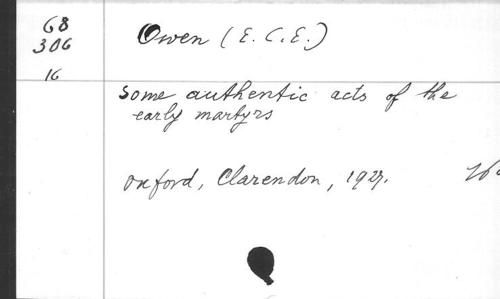 68
306
16
Owen (E. C. E.)
Some authentic acts of the
early martyrs
Oxford, Clarendon, 1927.